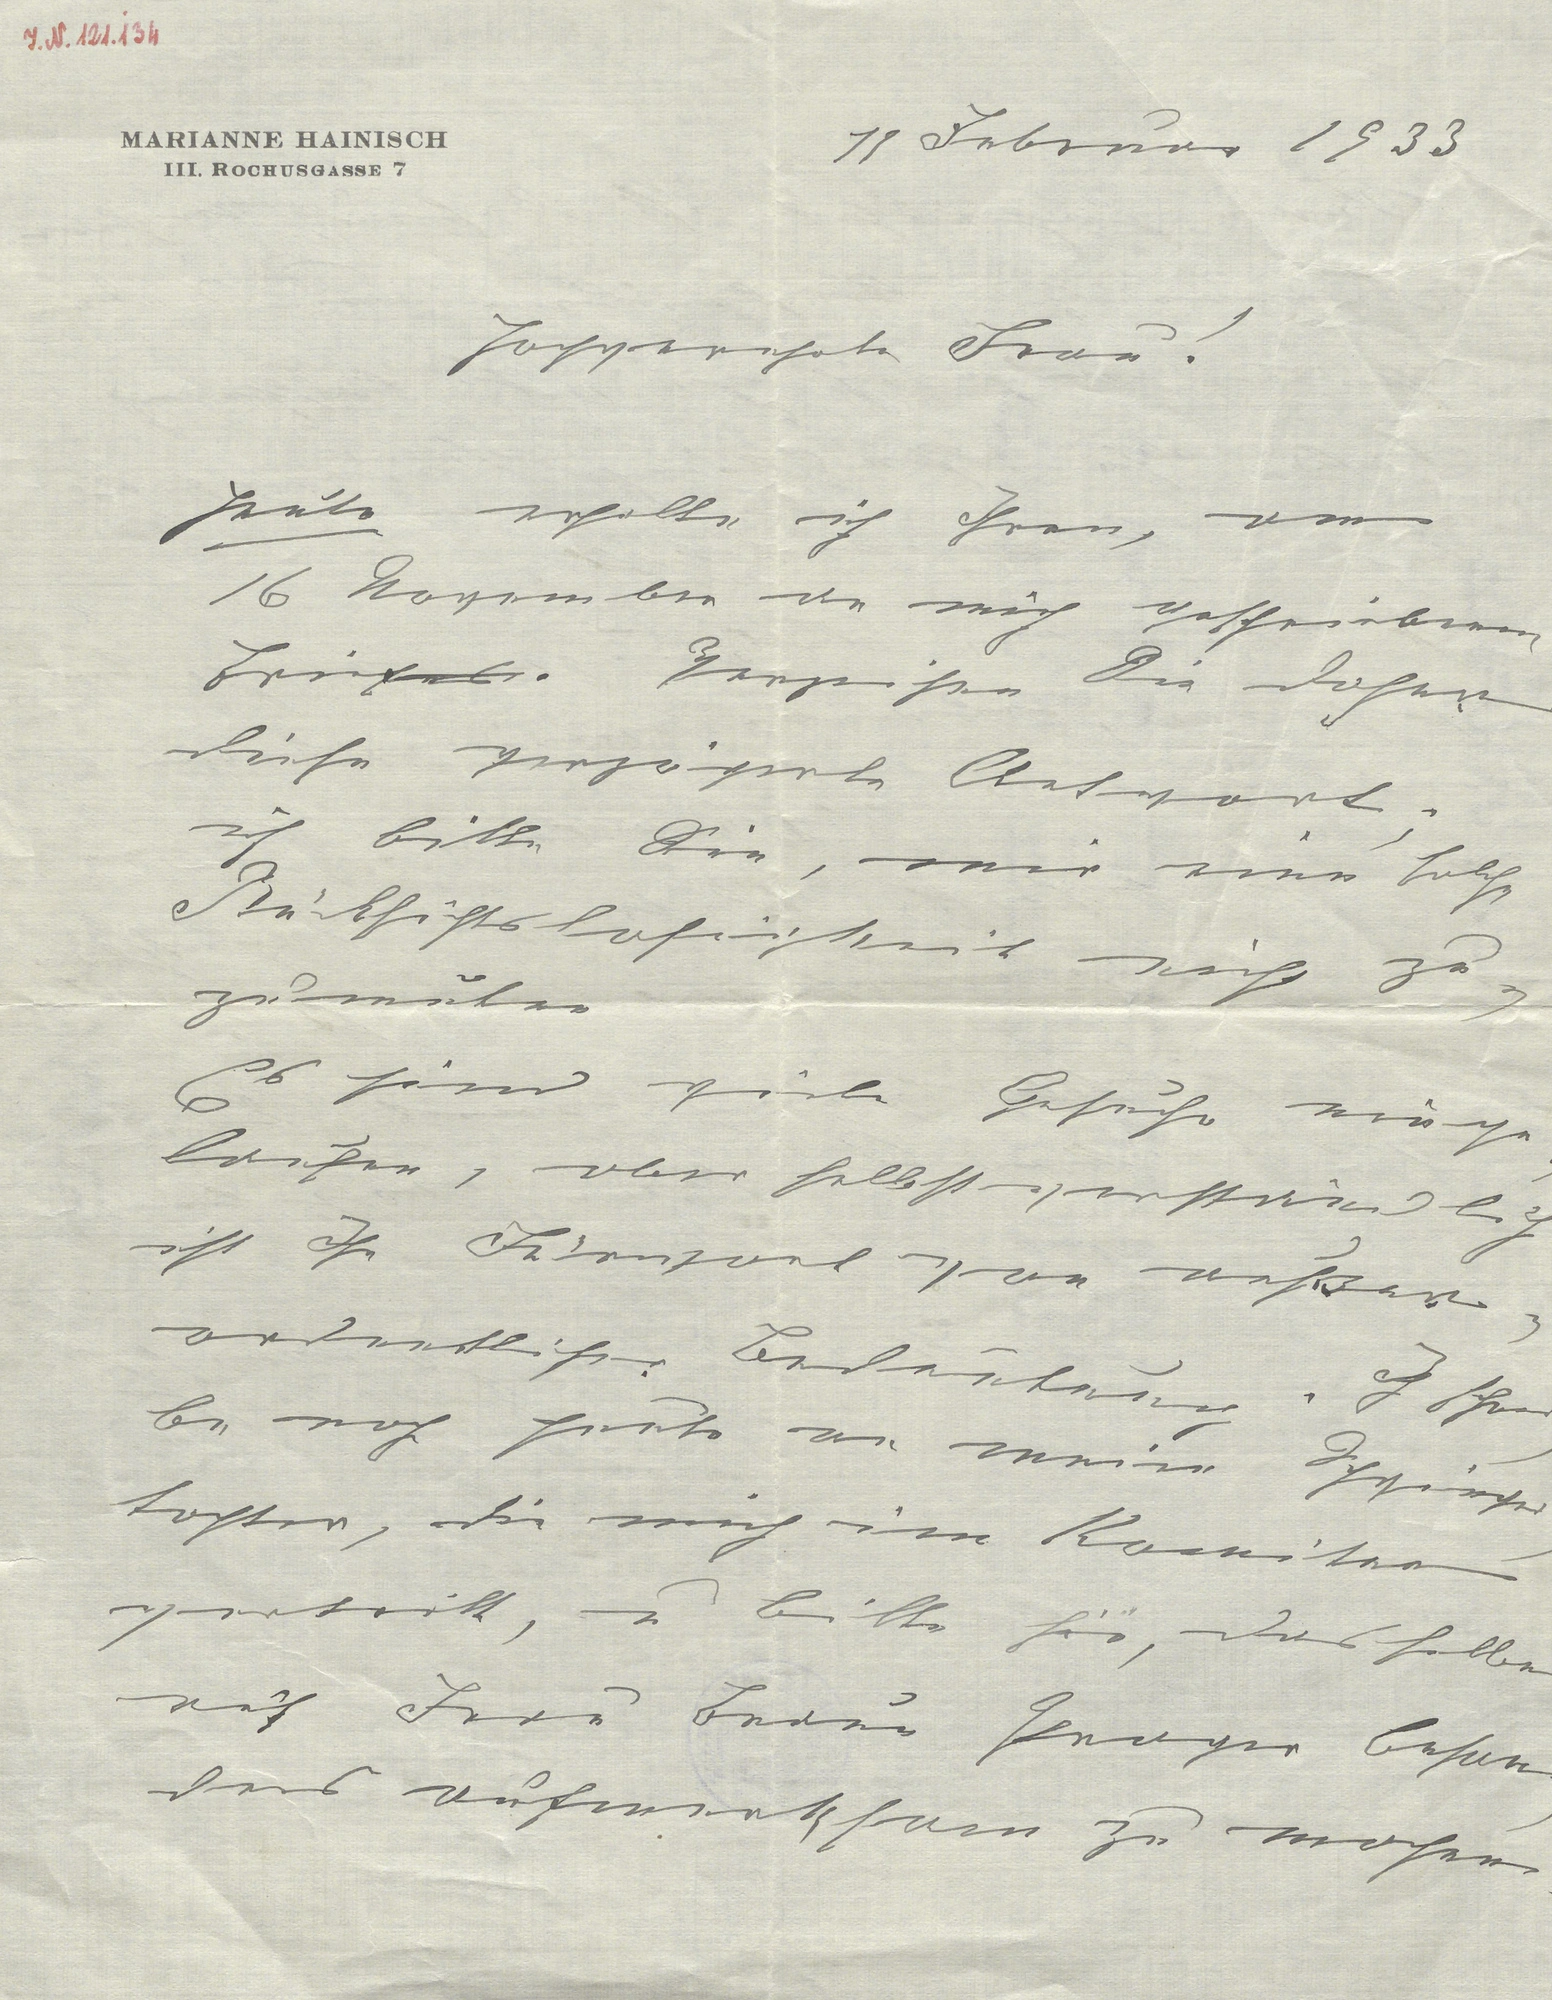 J.N. 121.134
MARIANNE HAINISCH
III. ROCHUSGASSE 7
11 Februar 1933
Hochverehrte Frau!
Heute erhalte ich Ihren, am
16 November an mich geschriebenen
Brief. Verzeihen Sie daher
diese verzögerte Antwort,
ich bitte Sie, mir eine solche
Rücksichtslosigkeit nicht zu-
zumuten
Es sind viele Gesuche einge
laufen, aber selbstverständlich
ist Ihr Fürwort von außer-
ordentlicher Bedeutung. Ich schrei
be noch heute an meine Schwieger
tochter, die mich im Komitee
vertritt, u bitte sie, dasselbe
auf Frau Braun Prager beson
ders aufmerksam zu machen.